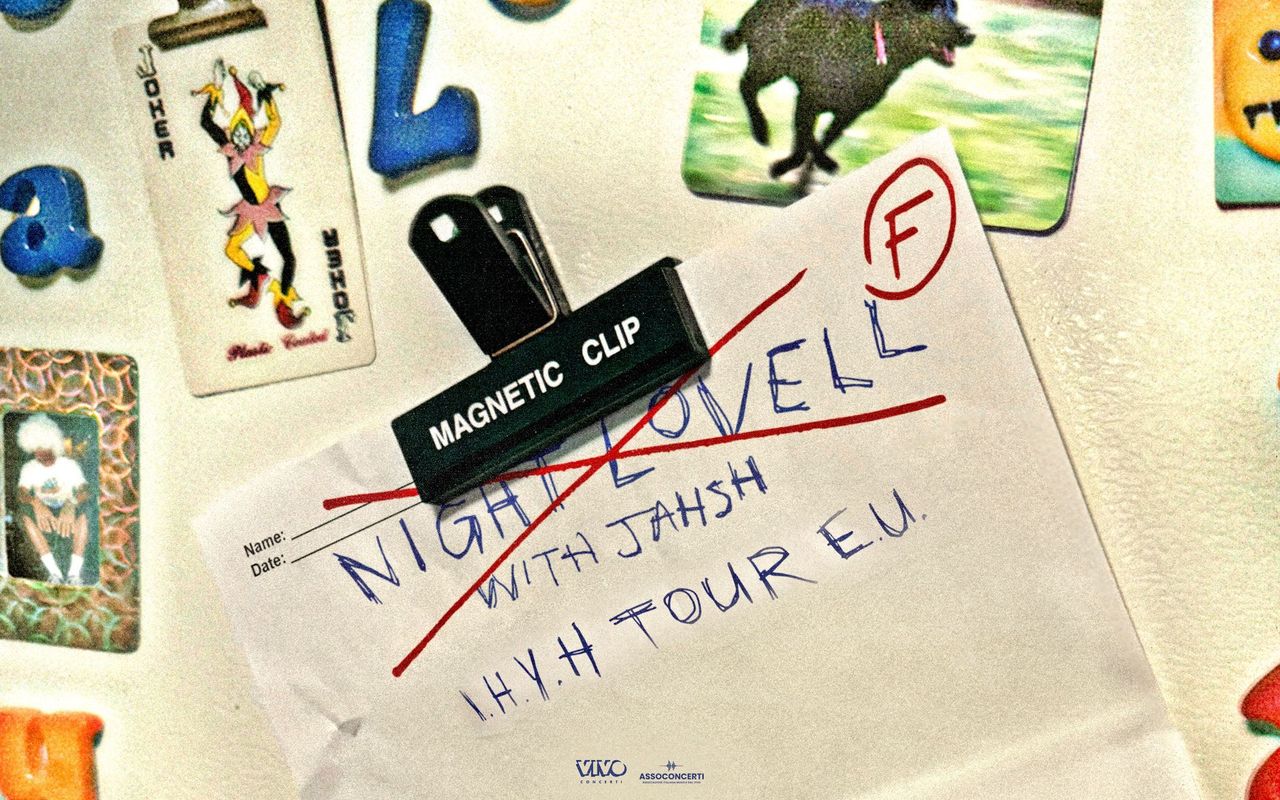 JOKER
L
a
JOKER
Plastic Coated
1
F
MAGNETIC CLIP
Name:
Date:
NIGHT LOVELL
WITH JAHSH
I.H.Y.H TOUR E.U.
u
VIVO
CONCERTI
ASSOCONCERTI